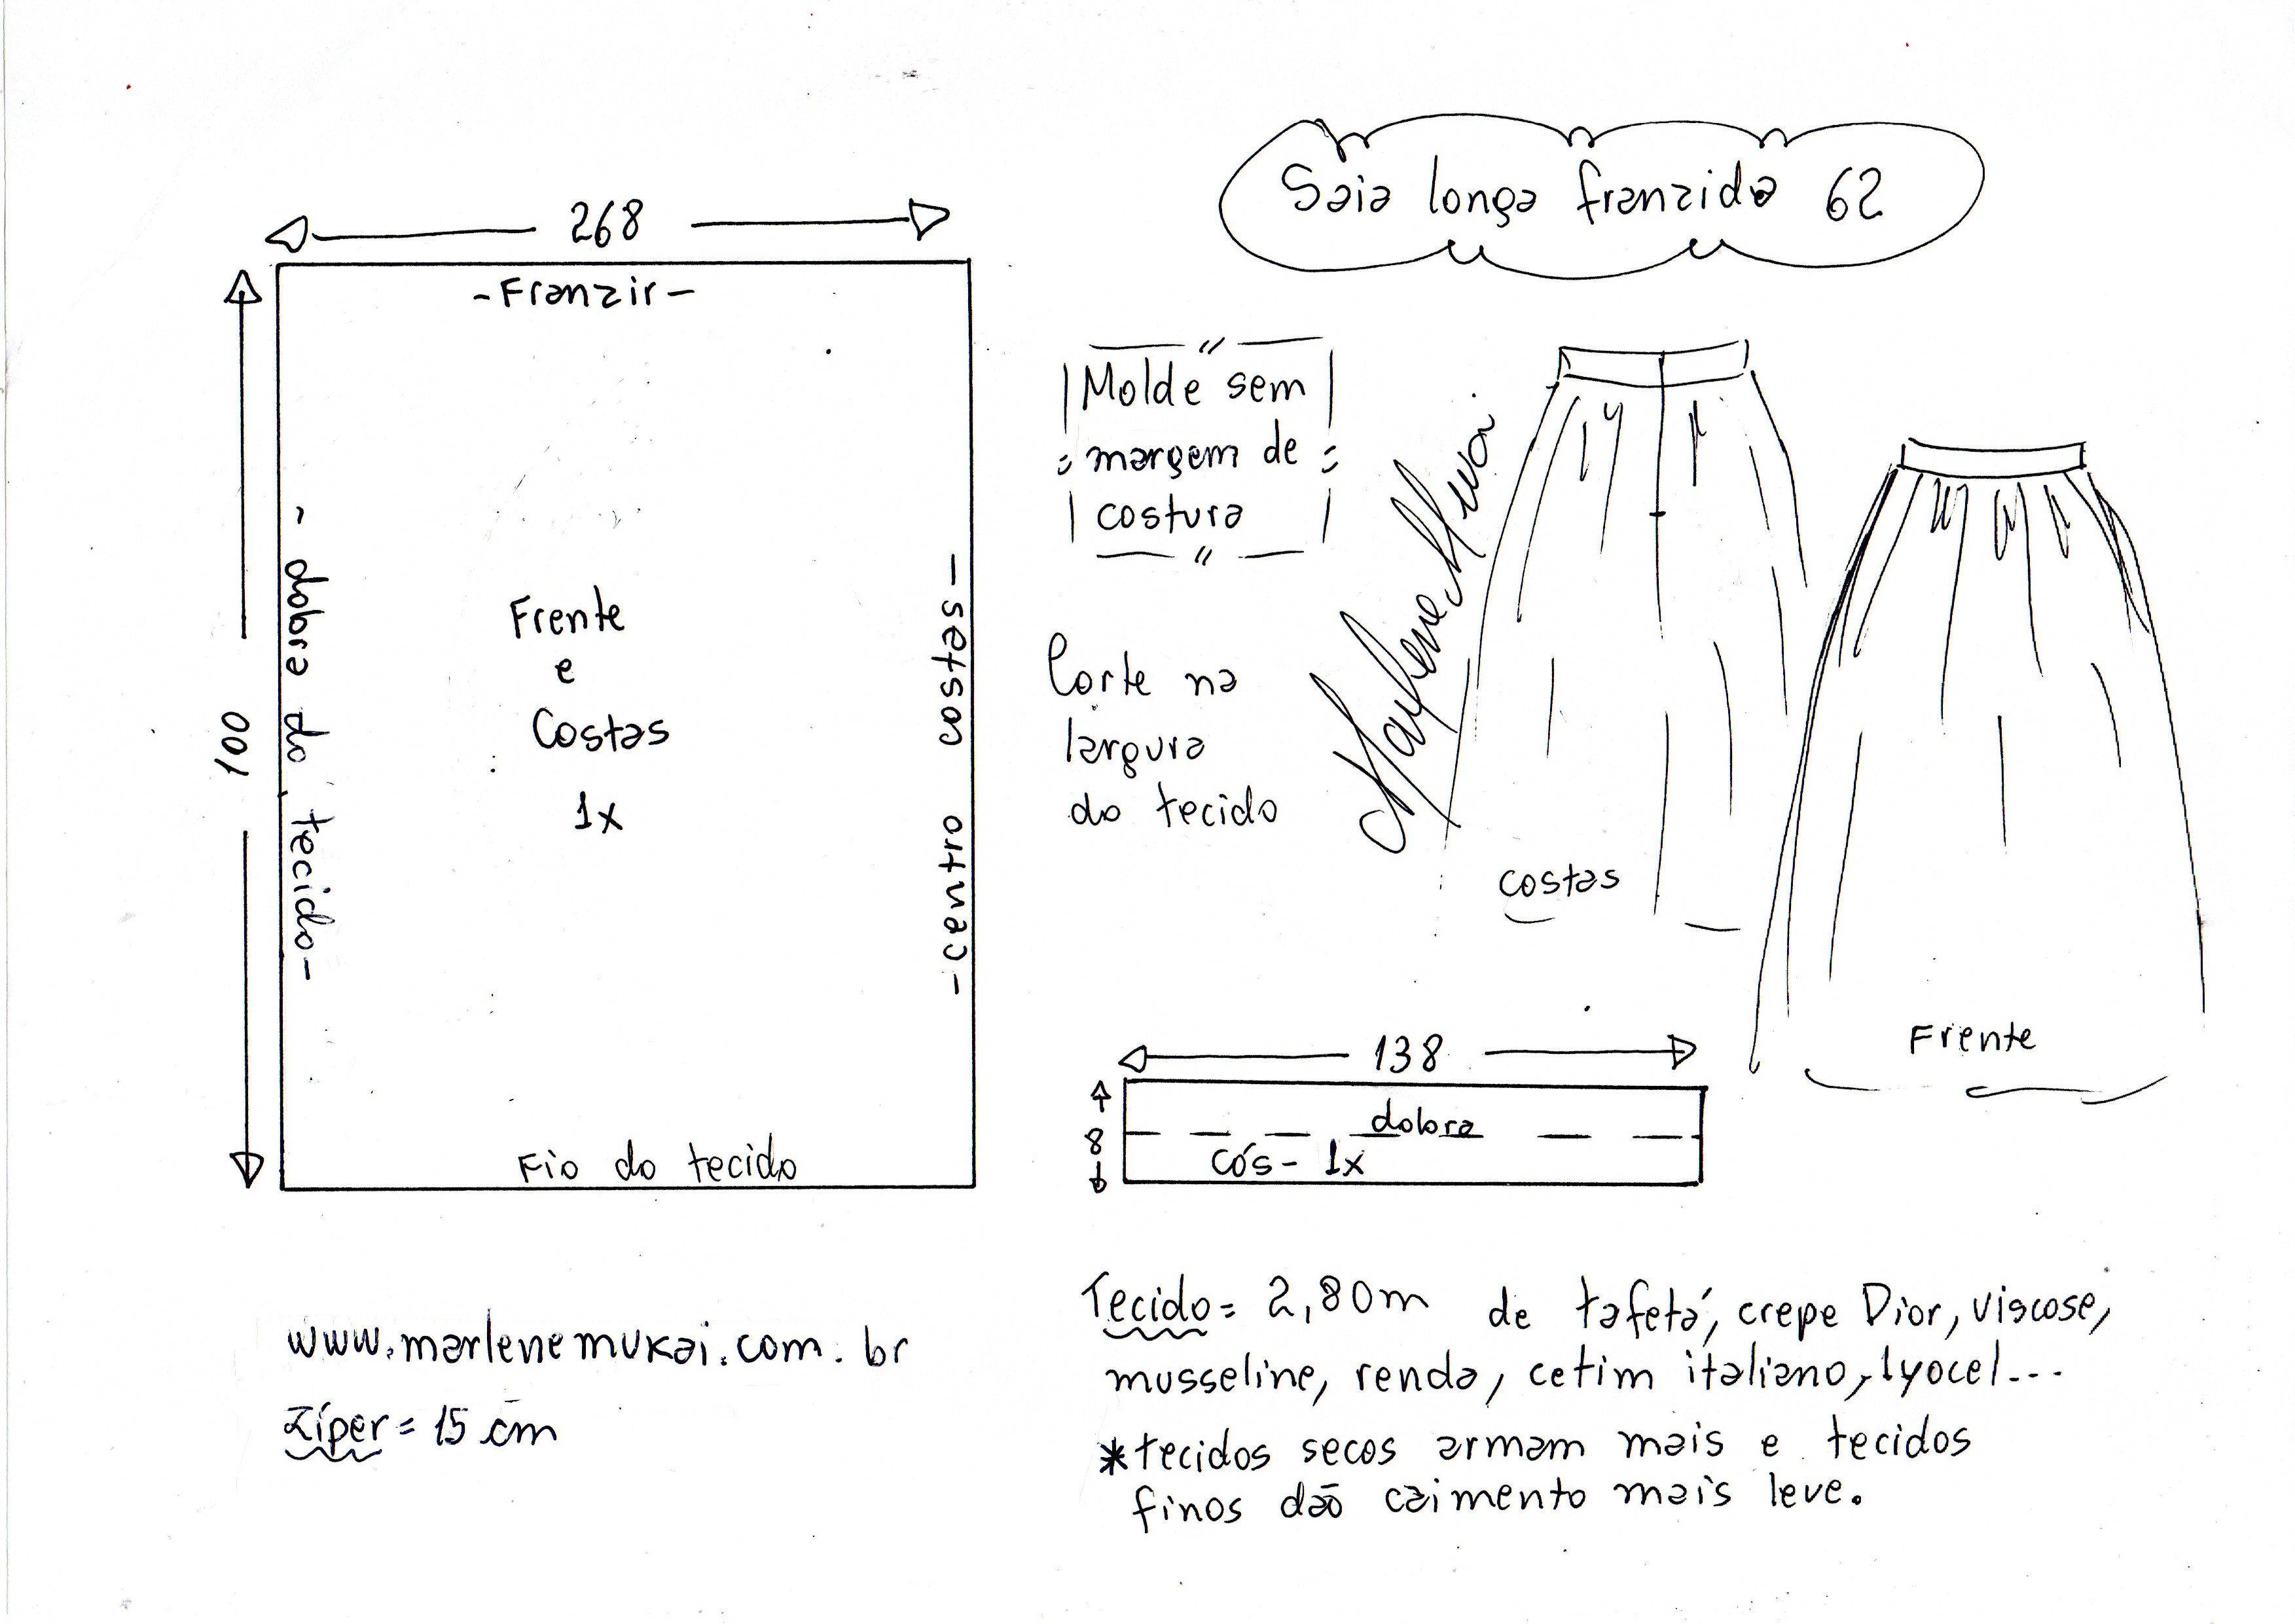 Saia longa franzida 62
268
-Franzir-
100
- dobra do tecido-
Frente
e
Costas
1x
-centro costas-
Fio do tecido
Molde sem
margem de
costura
Corte na
largura
do tecido
Marlene Mukai
costas
Frente
138
8
dobra
cós- 1x
www.marlenemukai.com.br
Zíper= 15 cm
Tecido= 2,80m de tafetá, crepe Dior, viscose,
musseline, renda, cetim italiano, lyocel...
*tecidos secos armam mais e tecidos
finos dão caimento mais leve.